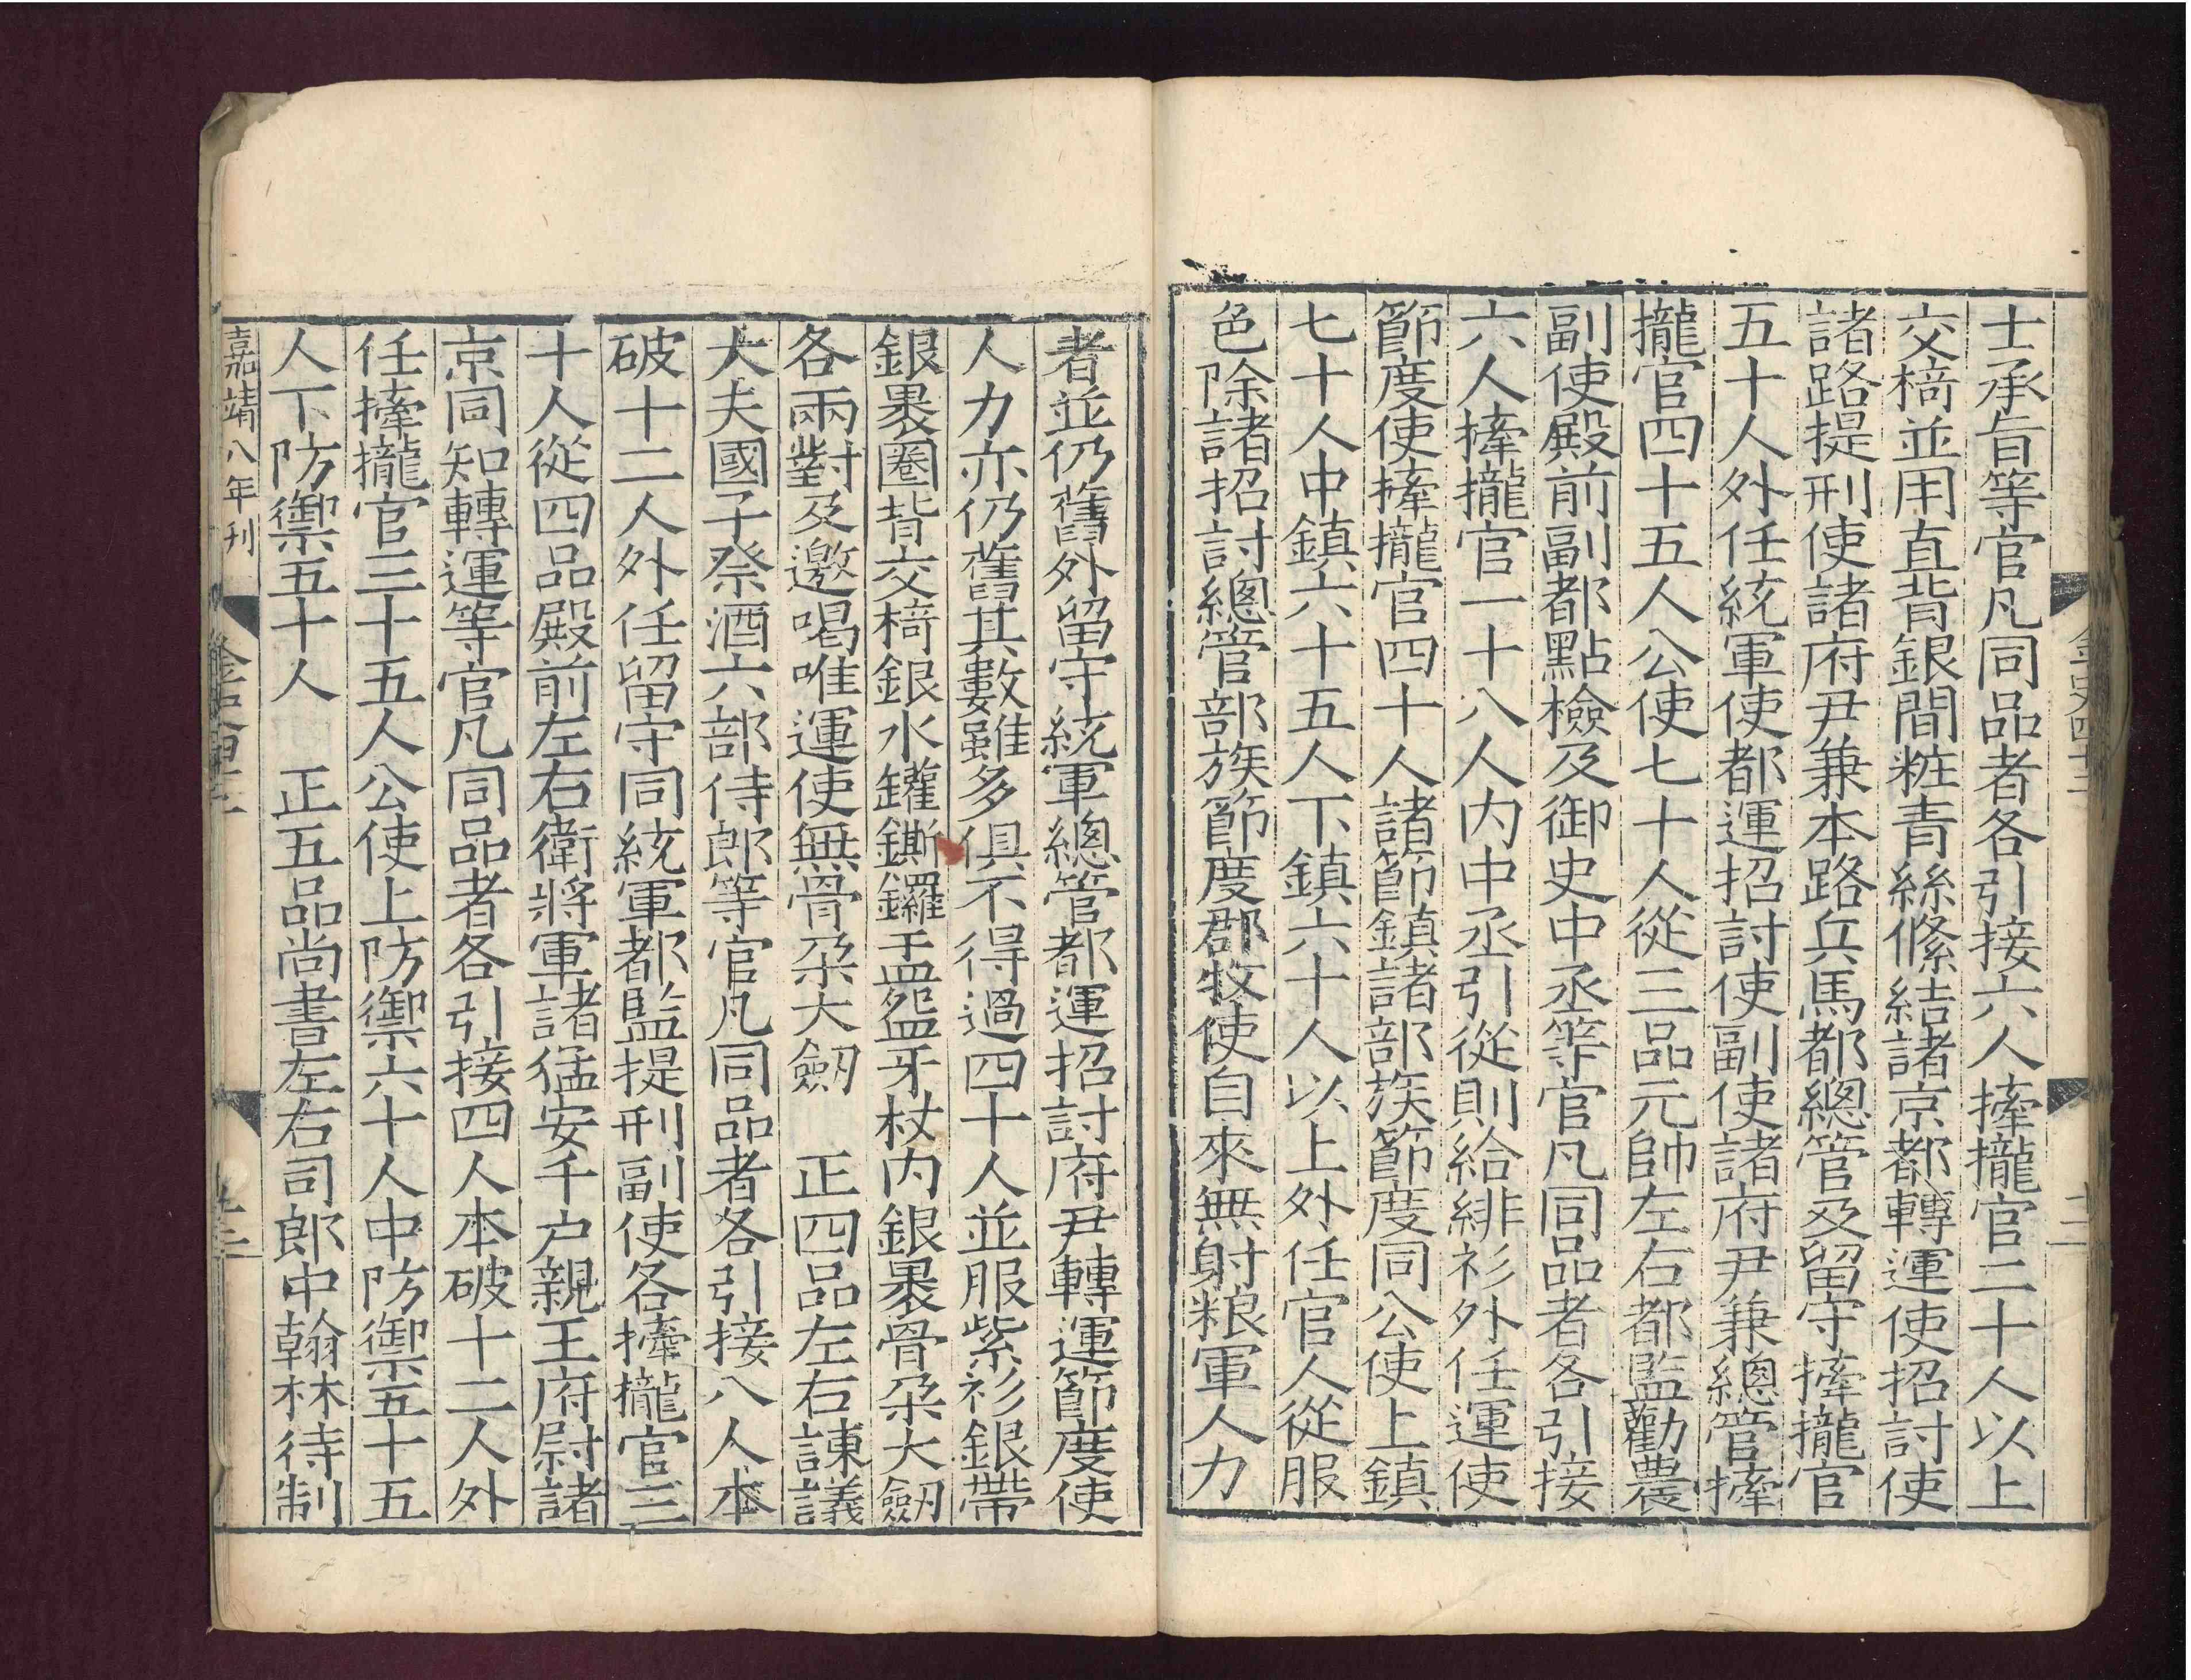 士承旨等官凡同品者各引接六人擡攏官二十人以上
交椅並用直背銀間粧青絲絛結諸京都轉運使招討使
諸路提刑使諸府尹兼本路兵馬都總管及留守擡攏官
五十人外任統軍使都運招討使副使諸府尹兼總管擡
攏官四十五人公使七十人從三品元帥左右都監勸農
副使殿前副都點檢及御史中丞等官凡同品者各引接
六人擡攏官一十八人内中丞引從則給緋衫外任運使
節度使擡攏官四十人諸節鎮諸部族節度同公使上鎮
七十人中鎮六十五人下鎮六十人以上外任官人從服
色除諸招討總管部族節度郡牧使自來無射粮軍人力
者並仍舊外留守統軍總管都運招討府尹轉運節度使
人力亦仍舊其數雖多俱不得過四十人並服紫衫銀帶
銀褁圈背交椅銀水鑵鐁鑼盂盌牙杖内銀褁骨朶大劒
各兩對及邀喝唯運使無骨朶大劒　正四品左右諫議
大夫國子祭酒六部侍郎等官凡同品者各引接八人本
破十二人外任留守同統軍都監提刑副使各擡攏官三
十人從四品殿前左右衛將軍諸猛安千户親王府尉諸
京同知轉運等官凡同品者各引接四人本破十二人外
任擡攏官三十五人公使上防禦六十人中防禦五十五
人下防禦五十人　正五品尚書左右司郎中翰林待制
嘉靖八年刊